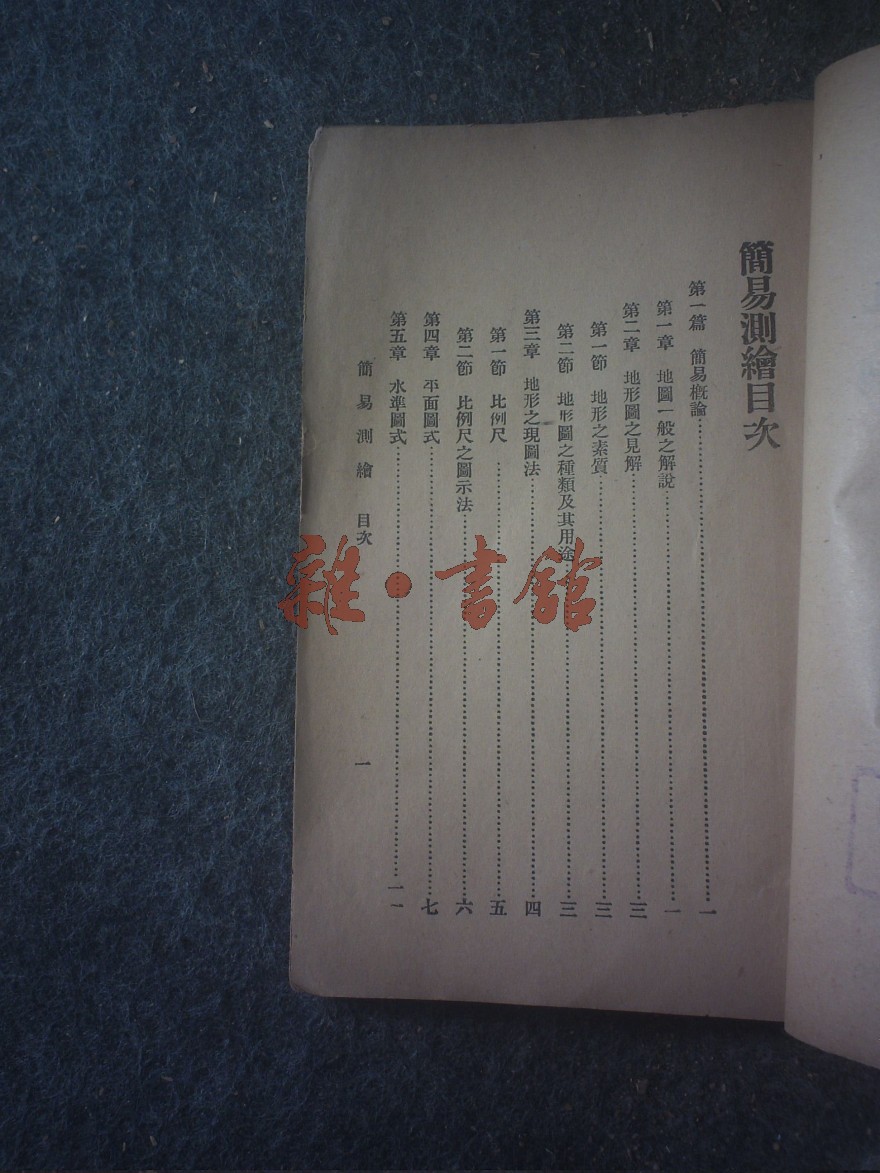 簡易測繪目次
第一篇 簡易概論……一
第一章 地圖一般之解說……一
第二章 地形圖之見解……三
第一節 地形之素質……三
第二節 地形圖之種類及其用途……三
第三章 地形之現圖法……四
第一節 比例尺……五
第二節 比例尺之圖示法……六
第四章 平面圖式……七
第五章 水準圖式……一一
簡易測繪 目次 一
雜·書館